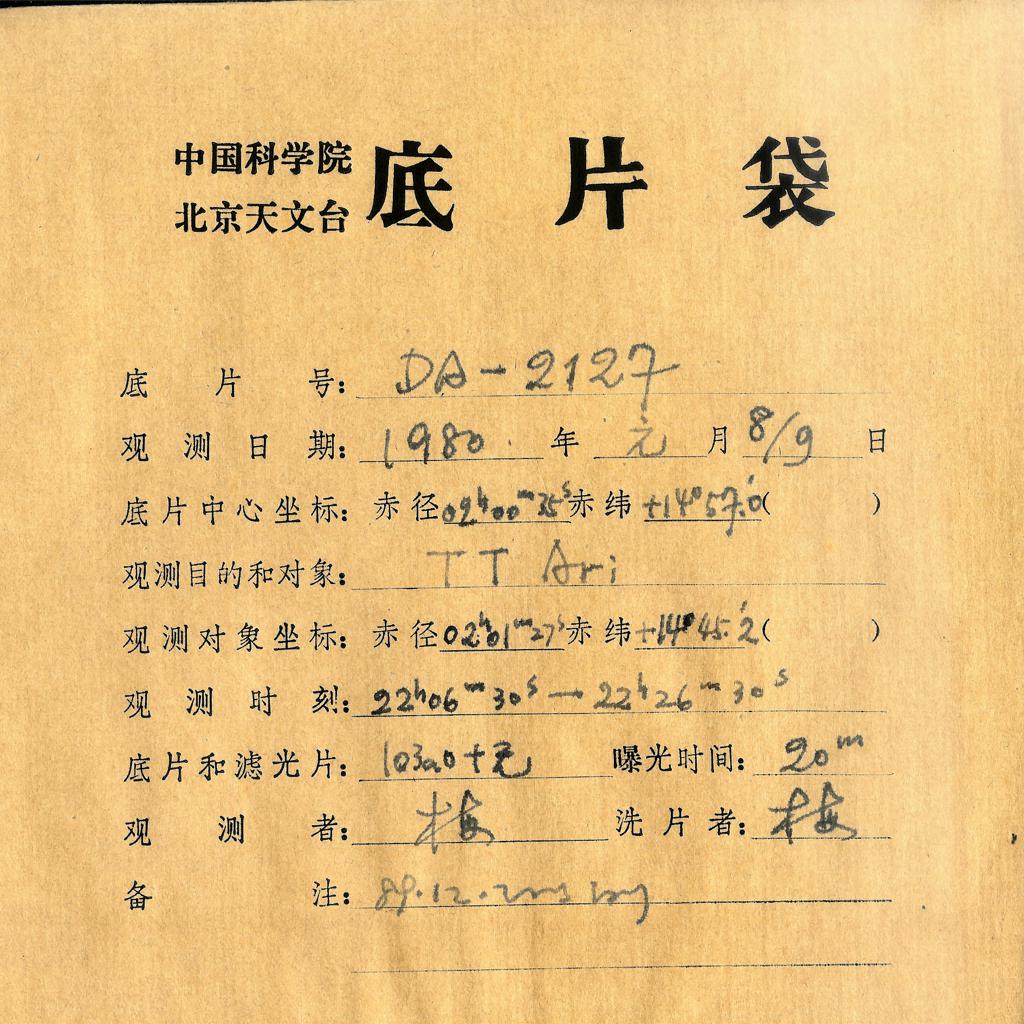 中国科学院
北京天文台
底片袋
底片号： DA-2127
观测日期： 1980 年 元 月 8/9 日
底片中心坐标： 赤径 02h00m35s 赤纬 +14°57.'0 ( )
观测目的和对象： TT Ari
观测对象坐标： 赤径 02h01m27s 赤纬 +14°45.'2 ( )
观测时刻： 22h06m30s → 22h26m30s
底片和滤光片： 103a0+无 曝光时间： 20m
观测者： 梅 洗片者： 梅
备注： 89.12.